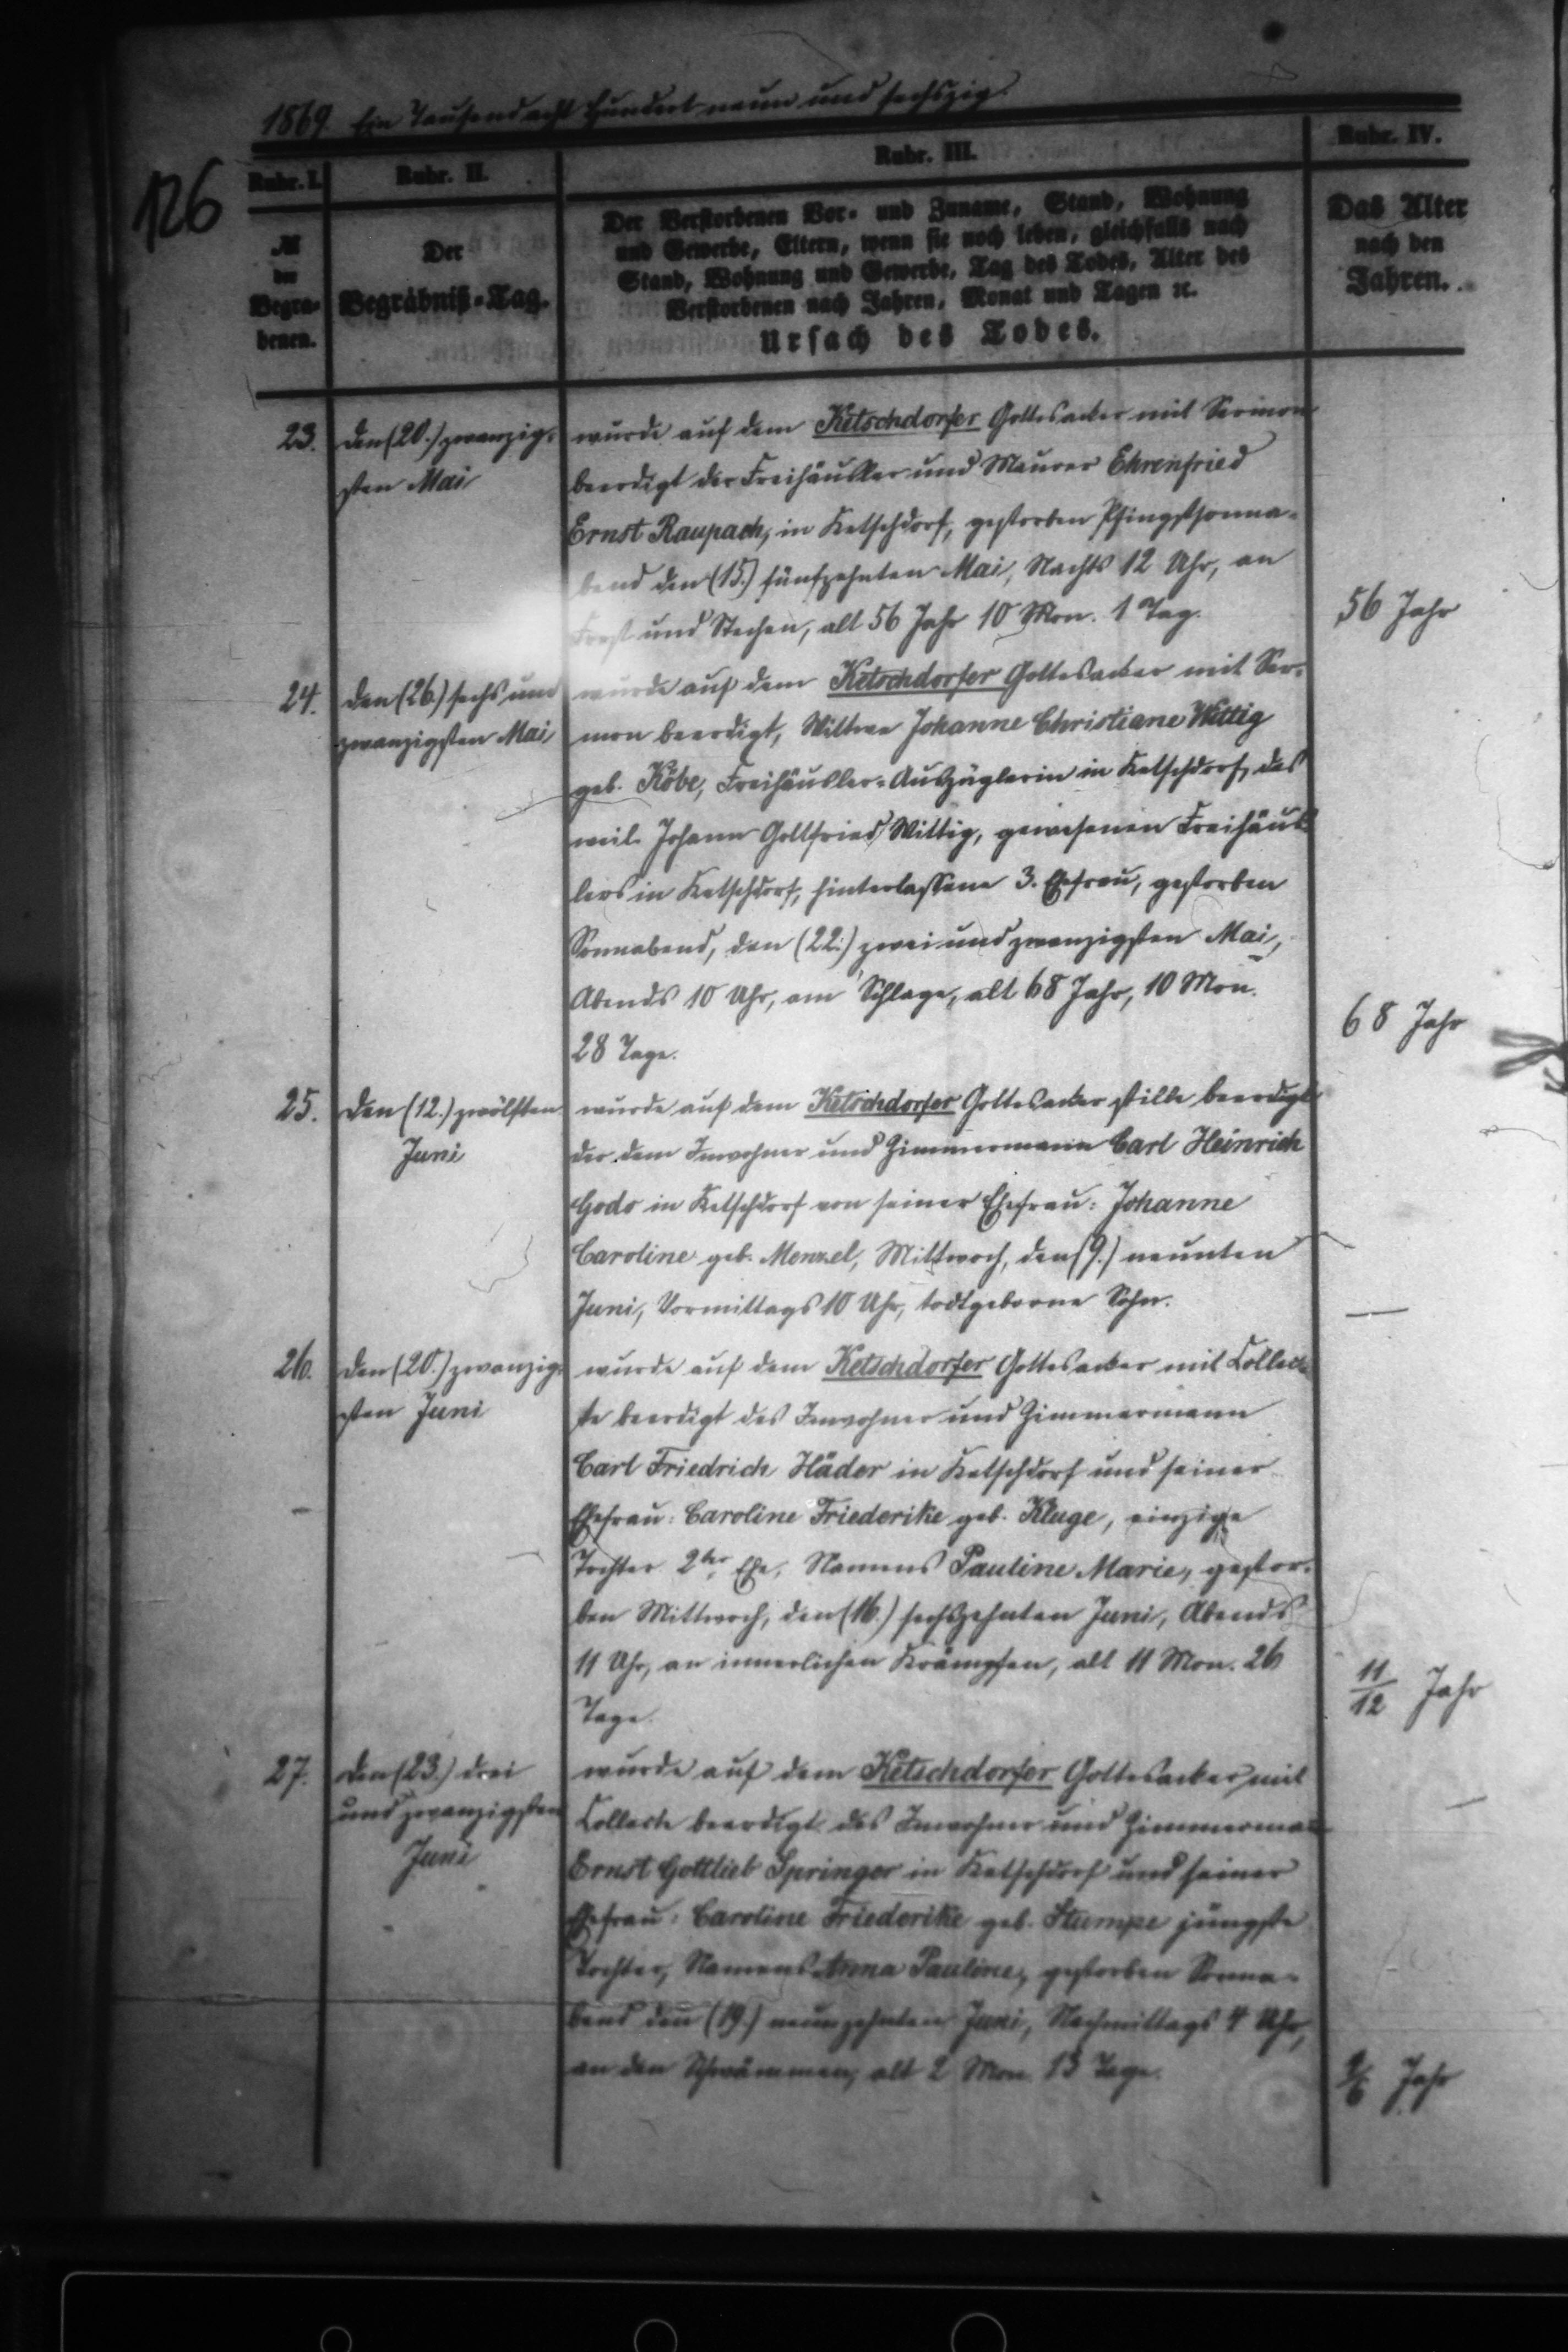 1869. Ein Tausend acht Hundert neun und sechszig.
126
Rubr. I.
Rubr. II.
Rubr. III.
Rubr. IV.
№
der
Begra-
benen.
Der
Begräbniß-Tag.
Der Verstorbenen Vor- und Zuname, Stand, Wohnung
und Gewerbe, Eltern, wenn sie noch leben, gleichfalls nach
Stand, Wohnung und Gewerbe, Tag des Todes, Alter des
Verstorbenen nach Jahren, Monat und Tagen ꝛc.
Ursach des Todes.
Das Alter
nach den
Jahren.
23.
den (20.) zwanzig-
sten Mai
wurde auf dem Ketschdorfer Gottesacker mit Sermon
beerdigt der Freihäusler und Maurer Ehrenfried
Ernst Raupach, in Ketschdorf, gestorben Pfingstsonna-
bend den (15.) fünfzehnten Mai, Nachts 12 Uhr, an
und Stechen, alt 56 Jahr 10 Mon. 1 Tag.
56 Jahr
24.
den (26.) sechs und
zwanzigsten Mai
wurde auf dem Ketschdorfer Gottesacker mit Ser-
mon beerdigt, Wittwe Johanne Christiane Wittig
geb. Köbe, Freihäusler-Auszüglerin in Ketschdorf, des
weil. Johann Gottfried Wittig, gewesenen Freihäus-
lers in Ketschdorf, hinterlassene 3. Ehefrau, gestorben
Sonnabend, den (22.) zwei und zwanzigsten Mai,
Abends 10 Uhr, am Schlage, alt 68 Jahr, 10 Mon.
28 Tage.
68 Jahr
25.
den (12.) zwölften
Juni
wurde auf dem Ketschdorfer Gottesacker stille beerdigt
der dem Inwohner und Zimmermann Carl Heinrich
Godo in Ketschdorf von seiner Ehefrau: Johanne
Caroline geb. Menzel, Mittwoch, den (9.) neunten
Juni, Vormittags 10 Uhr, todtgeborne Sohn.
—
26.
den (20.) zwanzig-
sten Juni
wurde auf dem Ketschdorfer Gottesacker mit Collec-
te beerdigt des Inwohner und Zimmermann
Carl Friedrich Häder in Ketschdorf und seiner
Ehefrau: Caroline Friederike geb. Kluge, einzige
Tochter 2ter Ehe, Namens Pauline Marie, gestor-
ben Mittwoch, den (16.) sechszehnten Juni, Abends
11 Uhr, an innerlichen Krämpfen, alt 11 Mon. 26
Tage.
11/12 Jahr
27.
den (23.) drei
und zwanzigsten
Juni
wurde auf dem Ketschdorfer Gottesacker mit
Collecte beerdigt des Inwohner und Zimmermann
Ernst Gottlieb Springer in Ketschdorf und seiner
Ehefrau: Caroline Friederike geb. Stumpe jüngste
Tochter, Namens Anna Pauline, gestorben Sonna-
bend den (19.) neunzehnten Juni, Nachmittags 4 Uhr,
an den Schwämmen, alt 2 Mon. 13 Tage.
Jahr